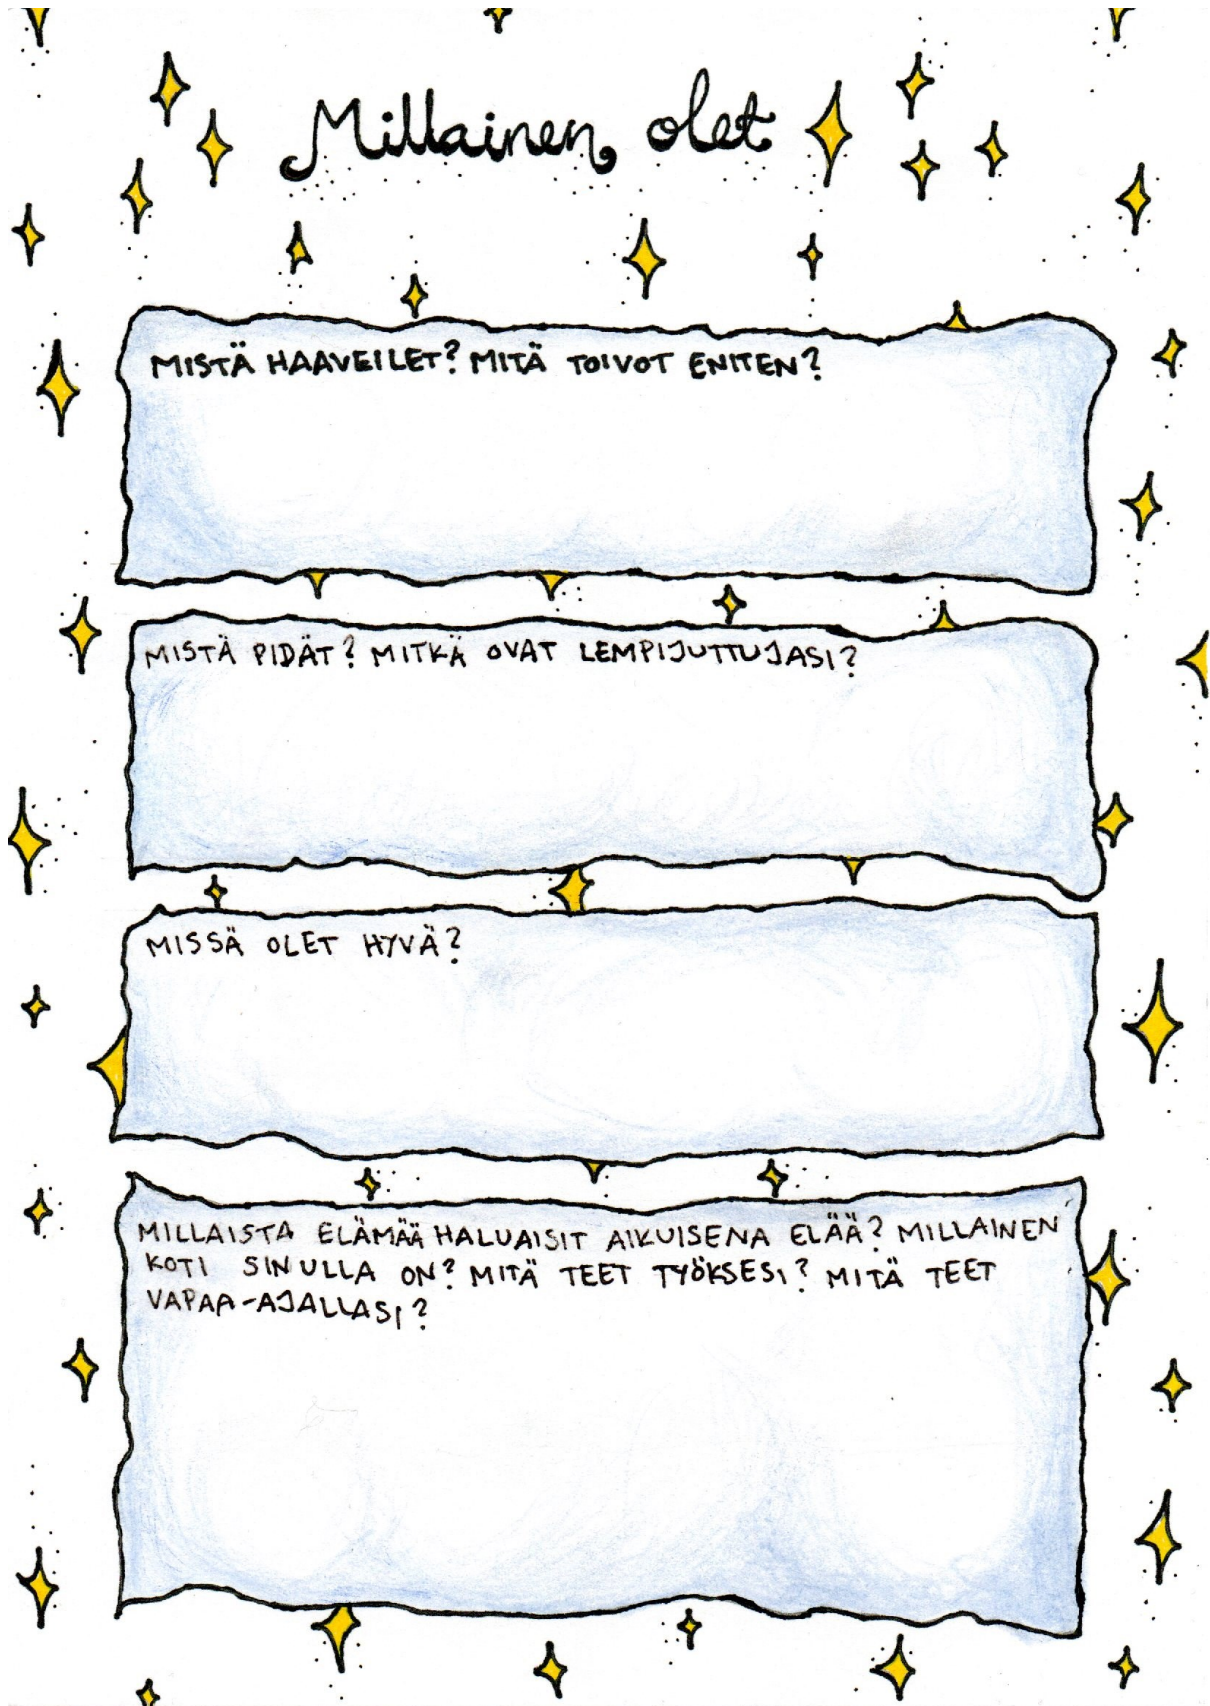 Millainen olet
MISTÄ HAAVEILET? MITÄ TOIVOT ENITEN?
MISTÄ PIDÄT? MITKÄ OVAT LEMPIJUTTUJASI?
MISSÄ OLET HYVÄ?
MILLAISTA ELÄMÄÄ HALUAISIT AIKUISENA ELÄÄ? MILLAINEN
KOTI SINULLA ON? MITÄ TEET TYÖKSESI? MITÄ TEET
VAPAA-AJALLASI?